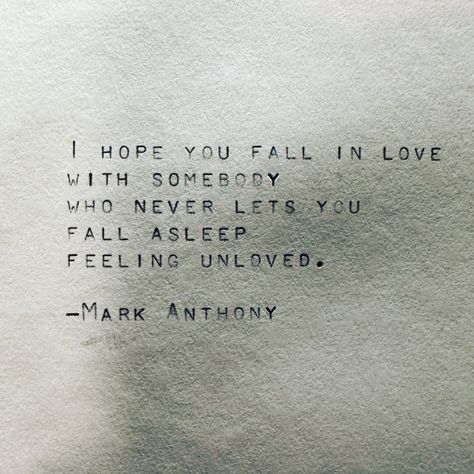 I HOPE YOU FALL IN LOVE
WITH SOMEBODY
WHO NEVER LETS YOU
FALL ASLEEP
FEELING UNLOVED.
—MARK ANTHONY